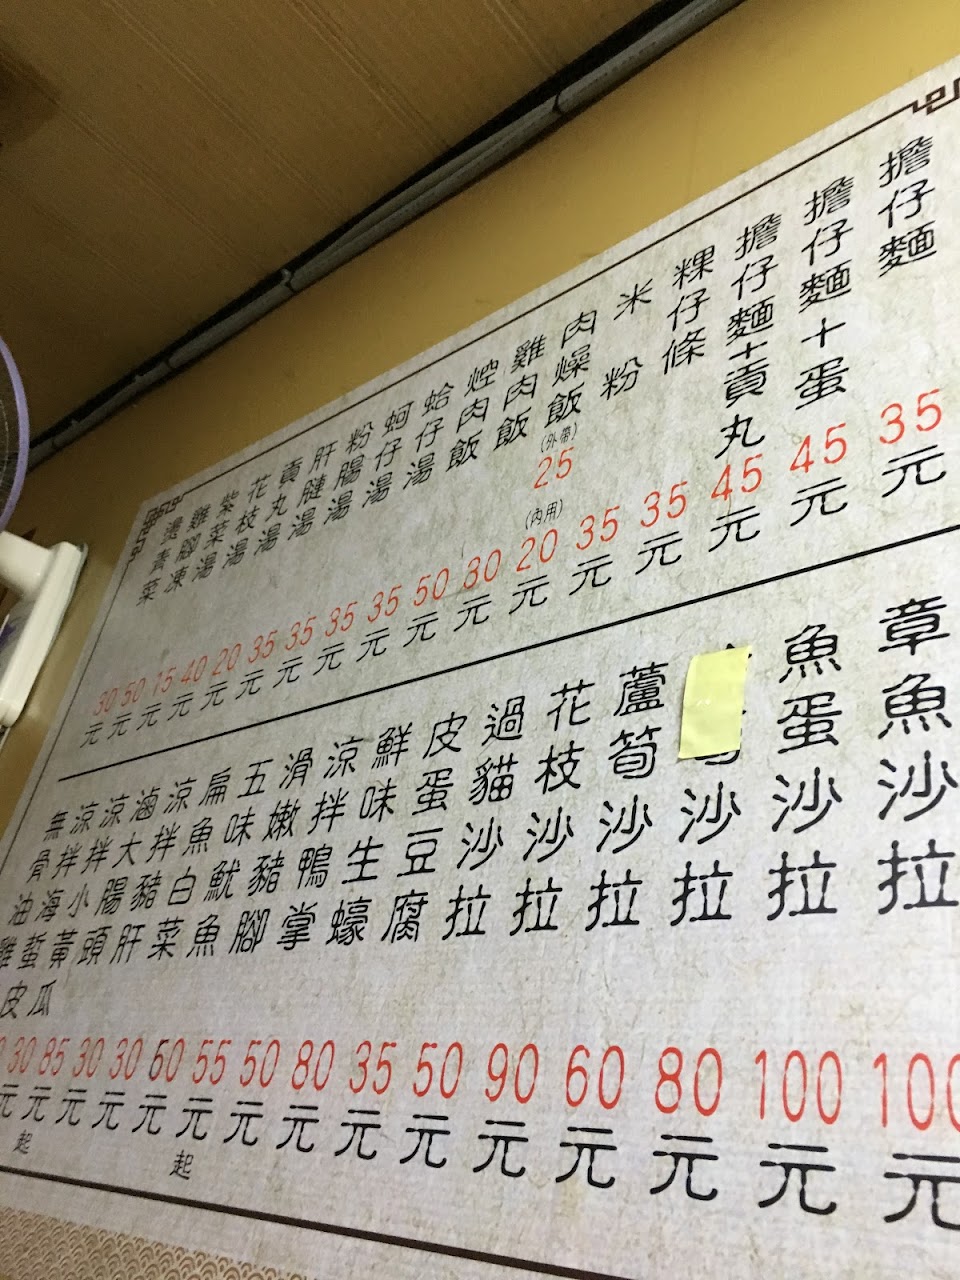 擔仔麵 35元
擔仔麵+蛋 45元
擔仔麵+貢丸 45元
粿仔條 35元
米粉 35元
肉燥飯 (外帶) 25 (內用) 20元
雞肉飯 30元
焢肉飯 50元
蛤仔湯 35元
蚵仔湯 35元
粉腸湯 35元
肝腱湯 35元
貢丸湯 20元
花枝湯 40元
紫菜湯 15元
雞腳凍 50元
燙青菜 30元
章魚沙拉 100元
魚蛋沙拉 100元
沙拉 80元
蘆筍沙拉 60元
花枝沙拉 90元
過貓沙拉 50元
皮蛋豆腐 35元
鮮味生蠔 80元
涼拌鴨掌 50元
滑嫩豬腳 55元起
五味魷魚 60元
扁魚白菜 30元
涼拌豬肝 30元
滷大腸頭 85元
涼拌小黃瓜 30元起
涼拌海蜇皮 元
無骨油雞